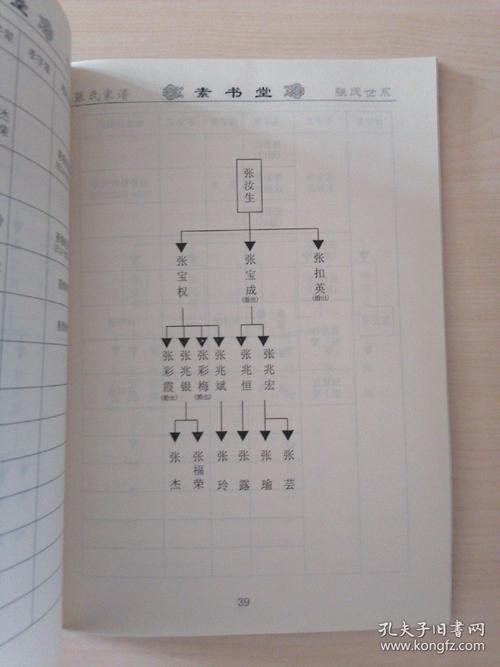 张氏家谱 素书堂 张氏世系
张汝生
张宝权 张宝成 张扣英
(嫁出)
张彩霞 张兆银 张彩梅 张兆斌 张兆恒 张兆宏
张杰 张福荣 张玲 张露 张瑜 张芸
39
杰
荣
孔夫子旧书网
www.kongfz.com